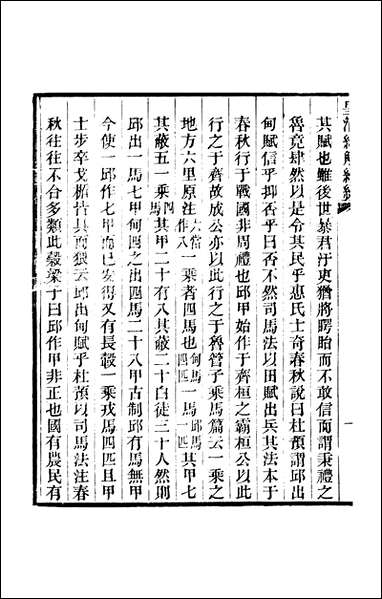 皇清經解續編
其賦也雖後世暴君汙吏猶將瞪眙而不敢信而謂秉禮之
魯竟肆然以是令其民乎惠氏士奇春秋說曰杜預謂邱出
甸賦信乎抑否乎曰否不然司馬法以田賦出兵其法本于
春秋行于戰國非周禮也邱甲始作于齊桓之霸桓公以此
行之于齊故成公亦以此行之于魯管子乘馬篇云一乘之
地方六里原注六當作八一乘者四馬也甸馬四匹一馬邱馬一匹其甲七
其蔽五一乘四馬其甲二十有八其蔽二十白徒三十人然則
邱出一馬七甲甸四之出四馬二十八甲古制邱有馬無甲
今使一邱作七甲而已安得又有長轂一乘戎馬四匹且甲
士步卒戈楯皆具而猥云邱出甸賦乎杜預以司馬法注春
秋往往不合多類此穀梁子曰邱作甲非正也國有農民有
一